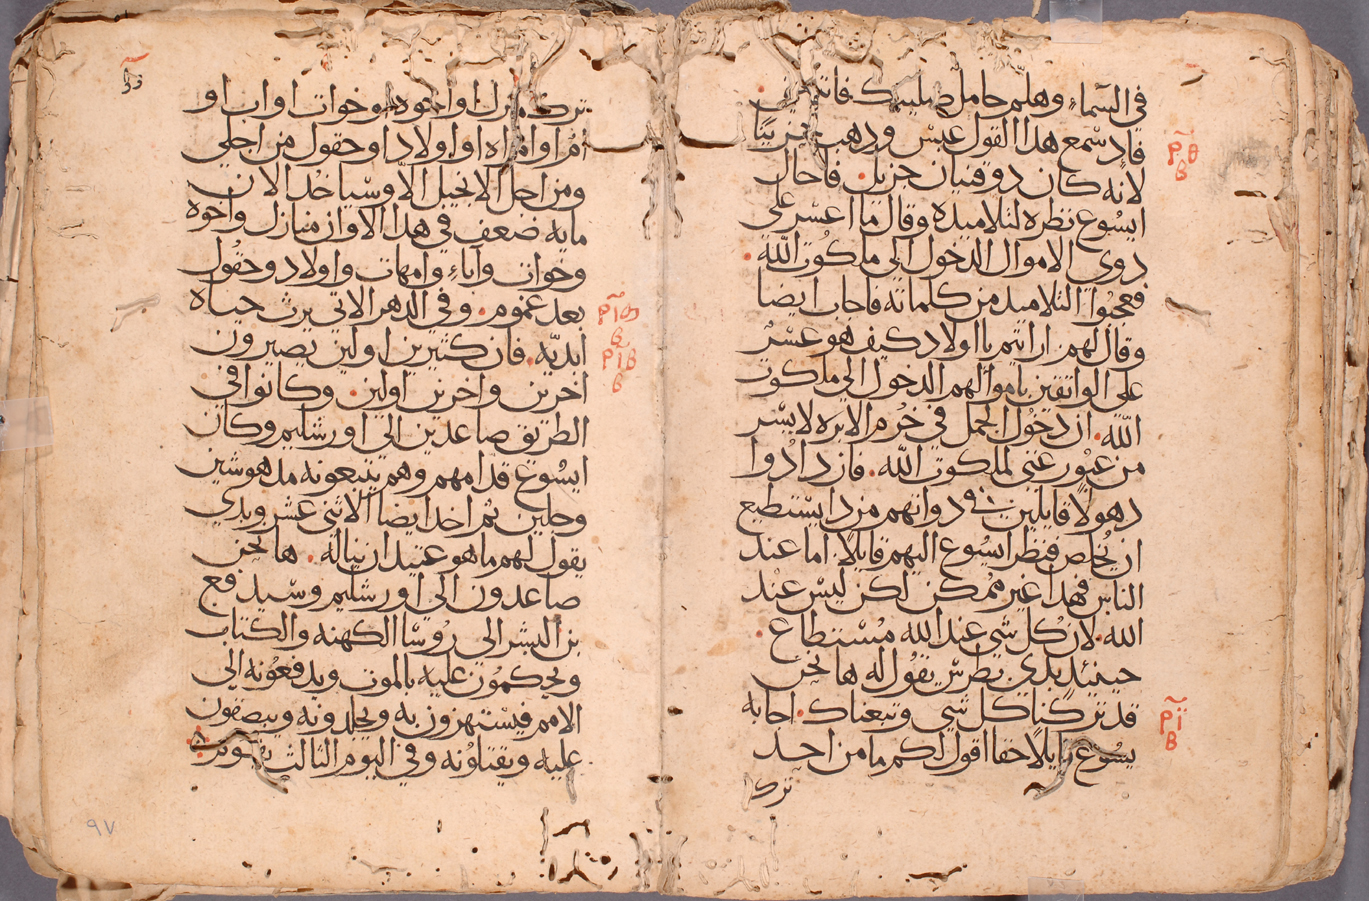 في السماء وهلم حامل صليبك فاتبعني
فاد سمع هدا القول عبس ودهب حزينا
لانه كان دو قنيان جزيل فاحال
ايسوع نظره لتلاميده وقال ما اعسر على
دوي الاموال الدخول الى ملكوت الله
فعجبوا التلاميد من كلماته فاجاب ايضا
وقال لهم اراتم يا اولاد كيف هو عسر
على الواتقين باموالهم الدخول الى ملكوت
الله ان دخول الجمل في خرم الابره لايسر
من عبور غني لملكوت الله فازدادوا
دهولا قايلين في دواتهم من دا يستطيع
ان يخلص فنظر ايسوع اليهم قايلا اما عند
الناس فهدا غير ممكن لكن ليس عند
الله لان كل شي عند الله مستطاع
حينيد بدي بطرس يقول له ها نحن
قد تركنا كل شي وتبعناك اجابه
يسوع قايلا حقا اقول لكم ما من احد
ترك
ترك منزل او اخوه او خوات او اب او
ام او امراه او اولاد او حقول من اجلي
ومن اجل الانجيل الا وسياخد الان
مايه ضعف في هدا الاوان منازل واخوه
وخوات واباء وامهات واولاد وحقول
بعد غموم وفي الدهر الاتي يرث حياه
ابديه فان كثيرين اولين يصيرون
اخرين واخرين اولين وكانوا في
الطريق صاعدين الى اورشليم وكان
ايسوع قدامهم وهم يتبعونه مدهوشين
وجلين ثم اخد ايضا الاثني عشر وبدي
يقول لهم ما هو عتيد ان يناله ها نحن
صاعدون الى اورشليم وسيدفع
بن البشر الى روسا الكهنه والكتاب
ويحكمون عليه بالموت ويدفعونه الى
الامم فيستهزون به ويجلدونه ويبصقون
عليه ويقتلونه وفي اليوم الثالث يقوم
٩٧